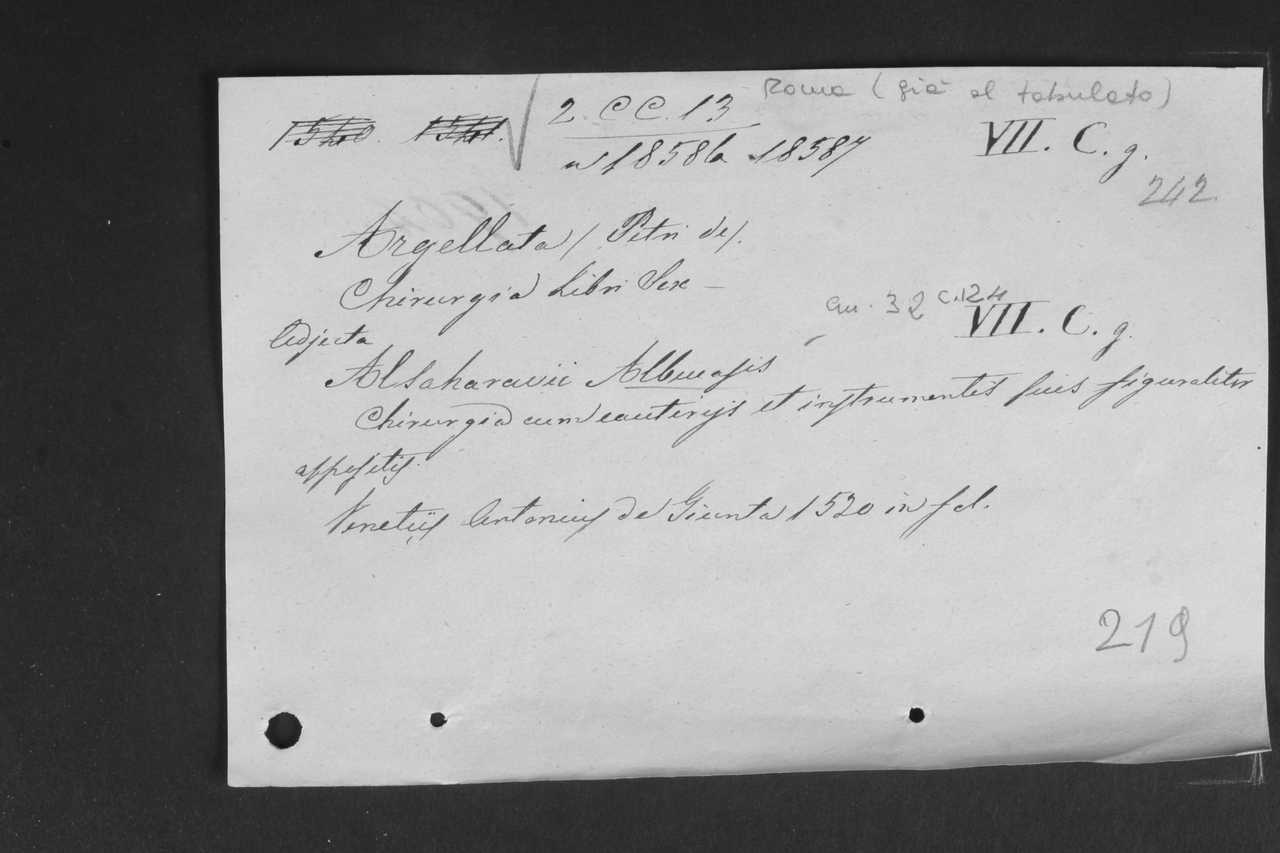 Roma (già al tabulato)
2. CC. 13
1540. 1541.
n 18586 18587
VII. C. g.
242
Argellata / Petri de /.
Chirurgia Libri Sex —
an. 32 c. 124
VII. C. g.
Adjecta
Alsaharavii Albucasis
Chirurgia cum cauterijs et instrumentis suis figuraliter
appositis.
Venetijs Antonius de Giunta 1520 in fol.
219